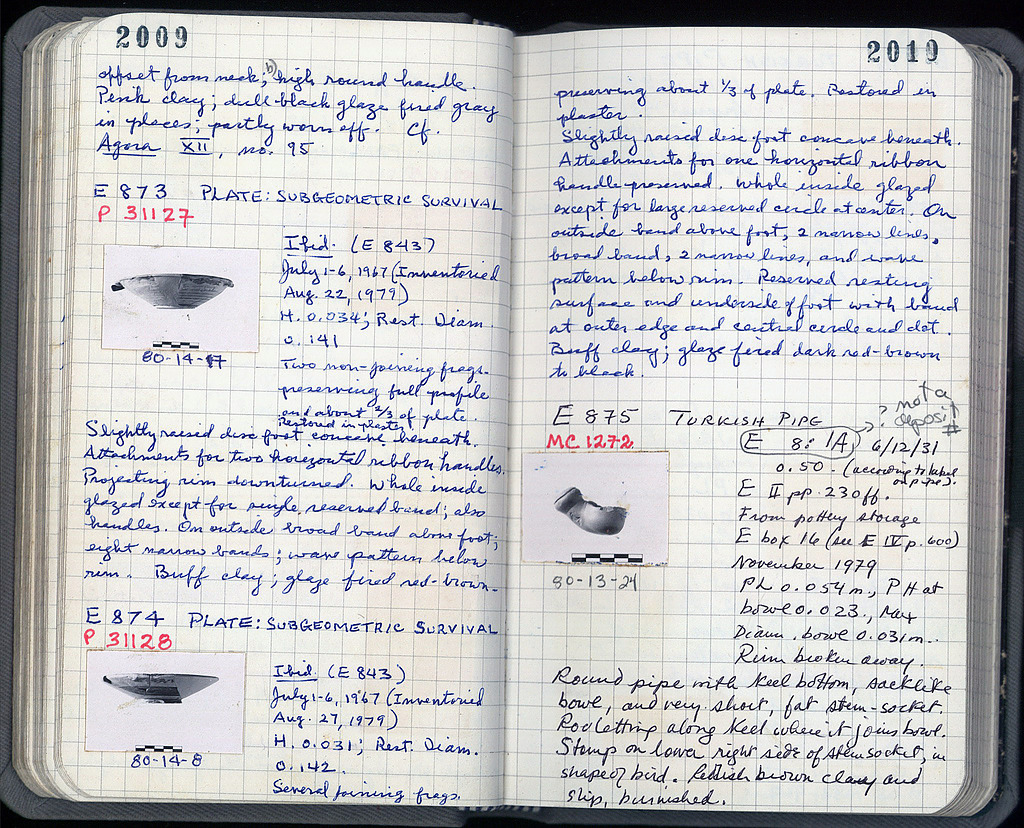 2009
offset from neck; b) high round handle.
Pink clay; dull black glaze fired gray
in places; partly worn off. Cf.
Agora XII, no. 95
E 873 PLATE: SUBGEOMETRIC SURVIVAL
P 31127
Ibid. (E 843)
July 1-6, 1967 (Inventoried
Aug. 22, 1979)
H. 0.034; Rest. Diam.
0.141
80-14-17
Two non-joining frags.
preserving full profile
and about 2/3 of plate.
Restored in plaster
Slightly raised disc foot concave beneath.
Attachments for two horizontal ribbon handles.
Projecting rim downturned. Whole inside
glazed except for single reserved band; also
handles. On outside broad band above foot;
eight narrow bands; wave pattern below
rim. Buff clay; glaze fired red-brown.
E 874 PLATE: SUBGEOMETRIC SURVIVAL
P 31128
Ibid. (E 843)
July 1-6, 1967 (Inventoried
Aug. 27, 1979)
H. 0.031; Rest. Diam.
0.142.
Several joining frags.
80-14-8
2010
preserving about 1/3 of plate. Restored in
plaster.
Slightly raised disc foot concave beneath.
Attachments for one horizontal ribbon
handle preserved. Whole inside glazed
except for large reserved circle at center. On
outside band above foot, 2 narrow lines,
broad band, 2 narrow lines, and wave
pattern below rim. Reserved resting
surface and underside of foot with band
at outer edge and central circle and dot.
Buff clay; glaze fired dark red-brown
to black.
E 875 TURKISH PIPE
? not a
deposit
#
MC 1272
E 8: 1A) 6/12/31
0.50 - (according to label
on pipe).
E II pp. 230 ff.
From pottery storage
E box 16 (see E IV p. 600)
November 1979
PL 0.054 m., PH at
bowl 0.023., Max
Diam. bowl 0.031 m.
Rim broken away.
80-13-24
Round pipe with keel bottom, sacklike
bowl, and very short, fat stem-socket.
Rouletting along keel where it joins bowl.
Stamp on lower right side of stem socket, in
shape of bird. Reddish brown clay and
slip, burnished.